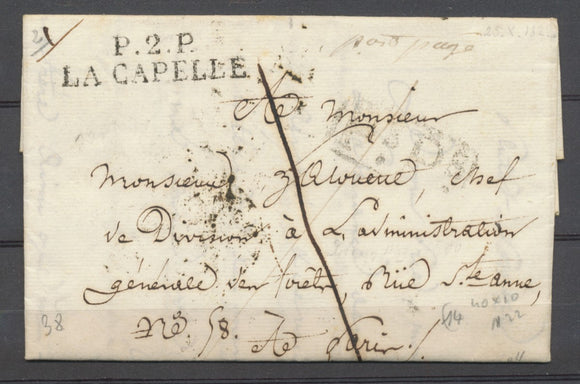 P.2.P.
LA CAPELLE
port payé
A Monsieur
Monsieur, Chef
de Division à L'administration
générale des forêts, Rüe Ste anne,
No. 58.
A Paris
38
40x10
n 22